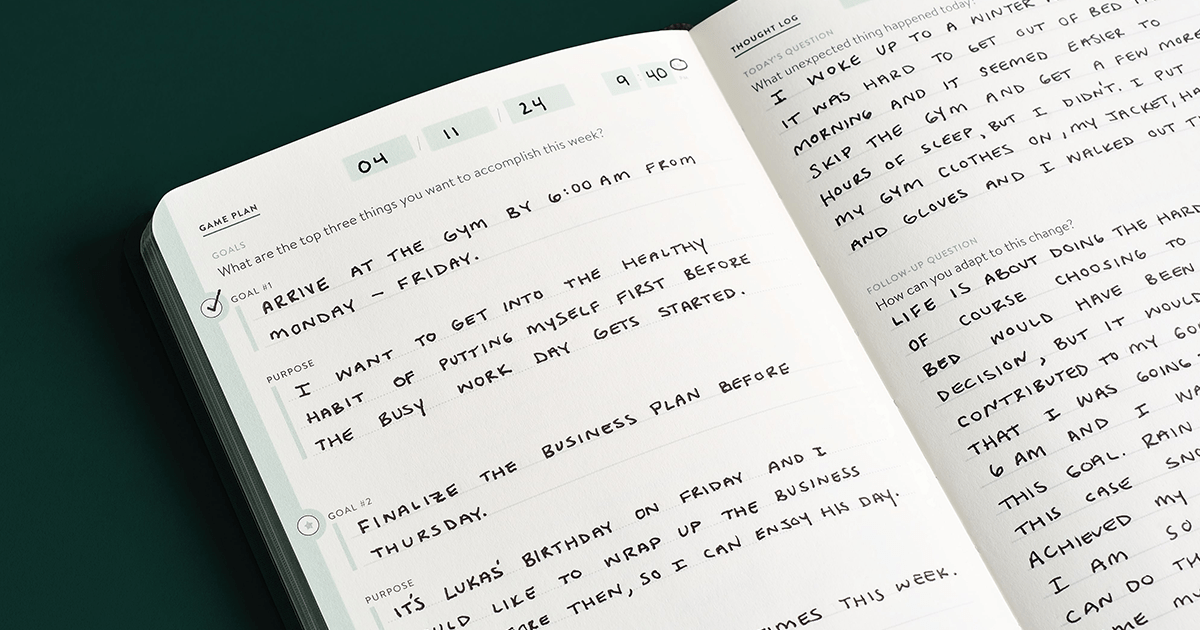 04 / 11 / 24
9 40
GAME PLAN
GOALS
What are the top three things you want to accomplish this week?
GOAL #1
ARRIVE AT THE GYM BY 6:00 AM FROM
MONDAY - FRIDAY.
PURPOSE
I WANT TO GET INTO THE HEALTHY
HABIT OF PUTTING MYSELF FIRST BEFORE
THE BUSY WORK DAY GETS STARTED.
GOAL #2
FINALIZE THE BUSINESS PLAN BEFORE
THURSDAY.
PURPOSE
IT'S LUKAS' BIRTHDAY ON FRIDAY AND I
LIKE TO WRAP UP THE BUSINESS
THEN, SO I CAN ENJOY HIS DAY.
THIS WEEK.
THOUGHT LOG
TODAY'S QUESTION
What unexpected thing happened today?
I WOKE UP TO A WINTER
IT WAS HARD TO GET OUT OF BED
MORNING AND IT SEEMED EASIER TO
SKIP THE GYM AND GET A FEW MORE
HOURS OF SLEEP, BUT I DIDN'T. I PUT
MY GYM CLOTHES ON, MY JACKET,
AND GLOVES AND I WALKED OUT
FOLLOW-UP QUESTION
How can you adapt to this change?
LIFE IS ABOUT DOING THE HARD
OF COURSE CHOOSING TO
BED WOULD HAVE BEEN
DECISION, BUT IT WOULD
CONTRIBUTED TO MY
THAT I WAS GOING
6 AM AND I
THIS GOAL. RAIN
THIS CASE
ACHIEVED MY
I AM SO
CAN DO